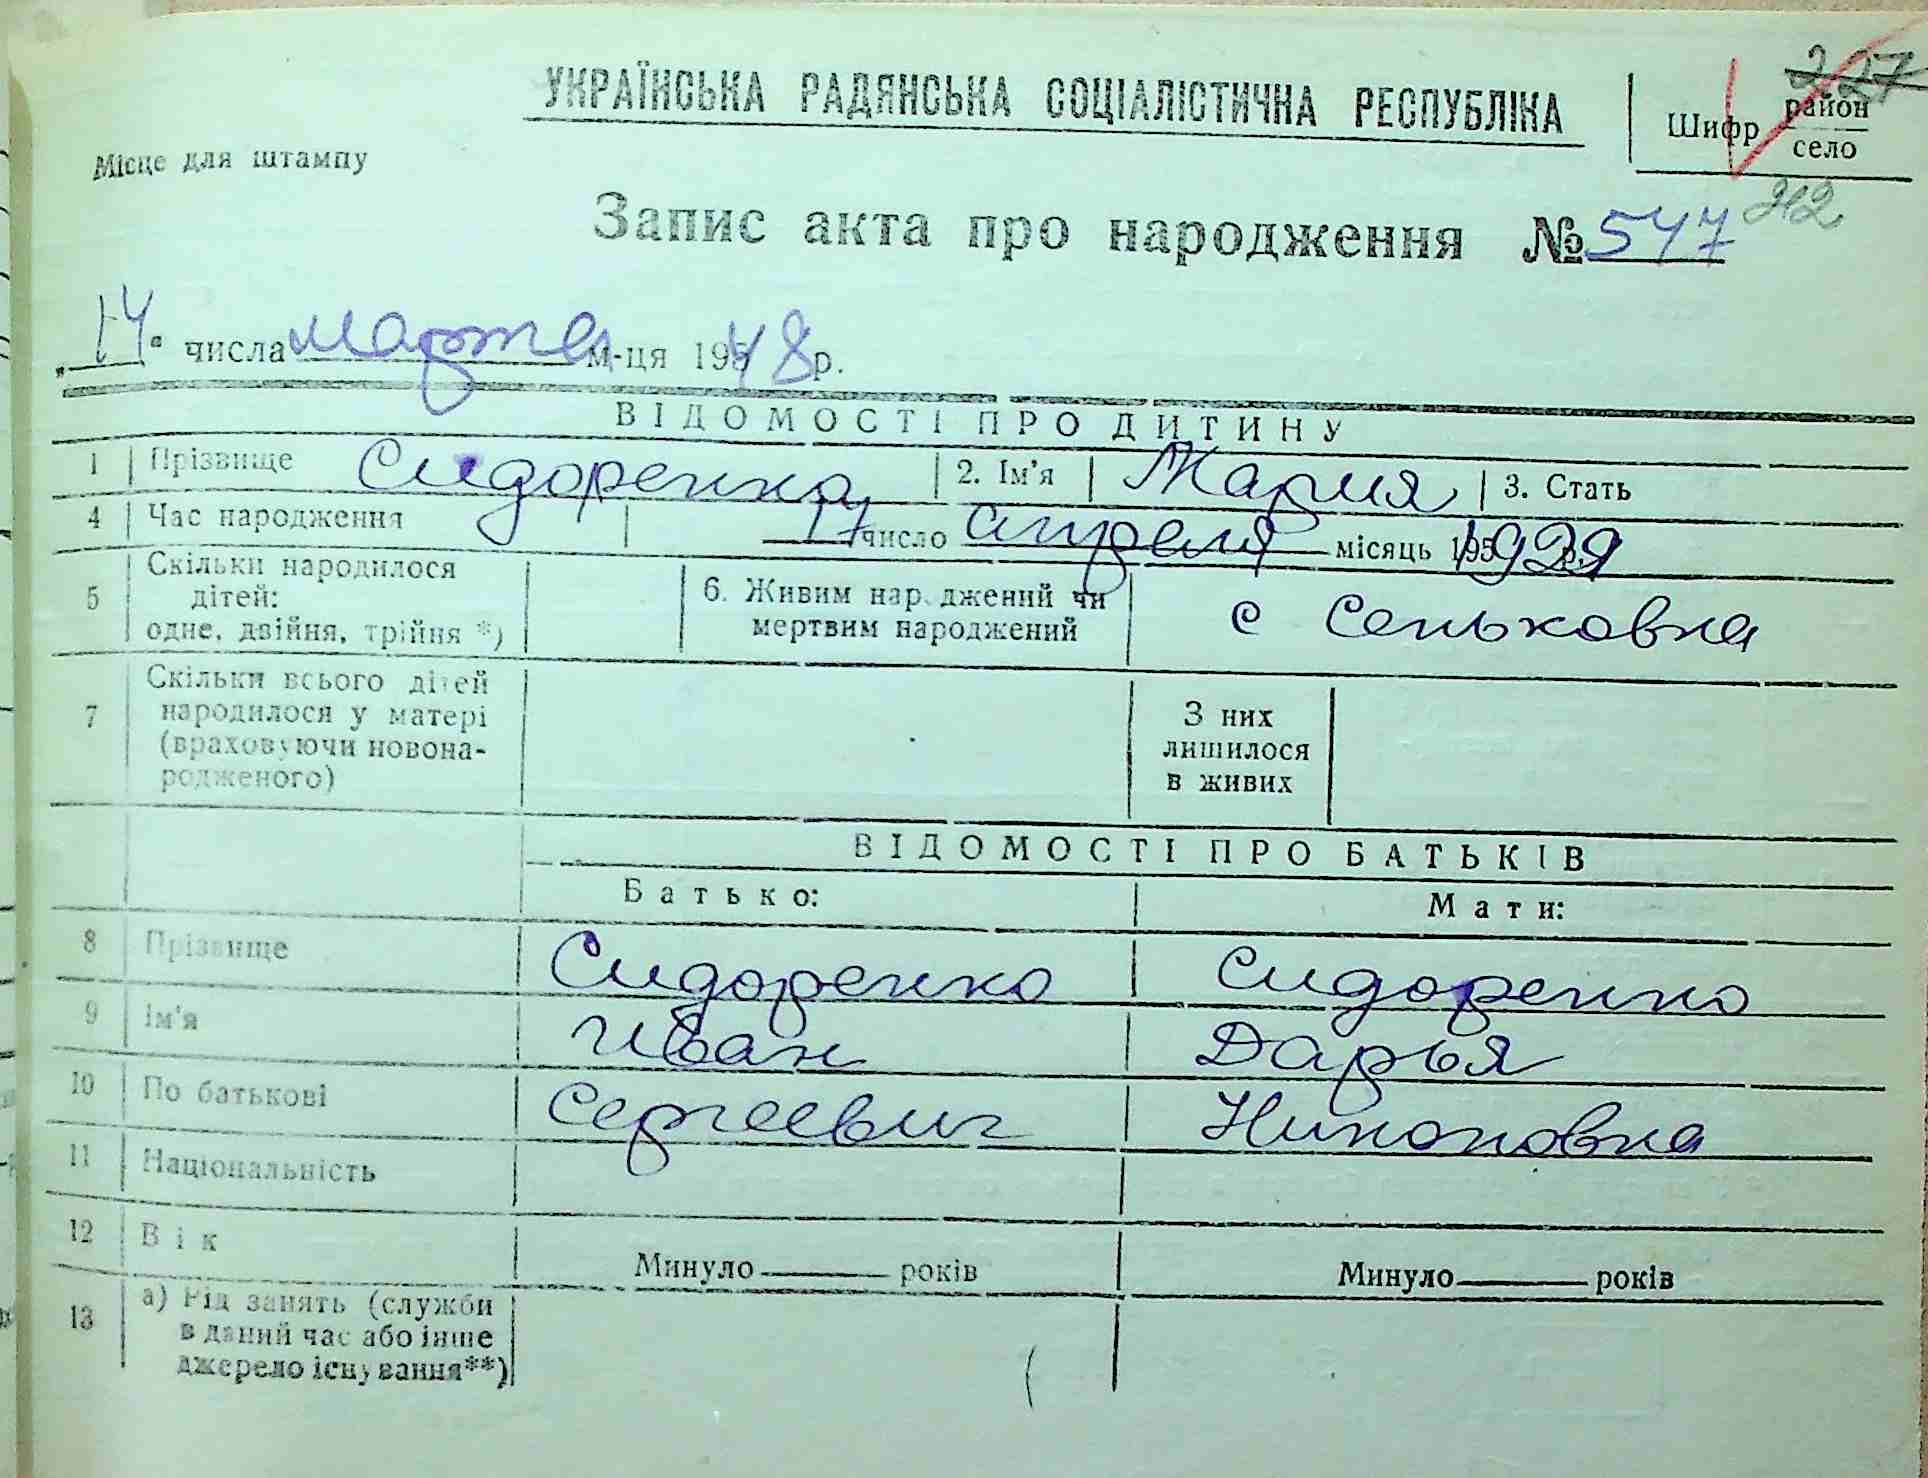 УКРАЇНСЬКА РАДЯНСЬКА СОЦІАЛІСТИЧНА РЕСПУБЛІКА
227
Шифр район
село
Місце для штампу
312
Запис акта про народження № 547
„14" числа марта м-ця 1948 р.
ВІДОМОСТІ ПРО ДИТИНУ
1 Прізвище Сидоренко 2. Ім'я Мария 3. Стать
4 Час народження 17 число апреля місяць 1929
5 Скільки народилося дітей: одне, двійня, трійня *) 6. Живим народжений чи мертвим народжений с Сеньковка
7 Скільки всього дітей народилося у матері (враховуючи новонародженого) З них лишилося в живих
ВІДОМОСТІ ПРО БАТЬКІВ
Батько: Мати:
8 Прізвище Сидоренко Сидоренко
9 Ім'я Иван Дарья
10 По батькові Сергеевич Никоновна
11 Національність
12 Вік Минуло ——— років Минуло ——— років
13 а) Рід занять (служби в даний час або інше джерело існування**)